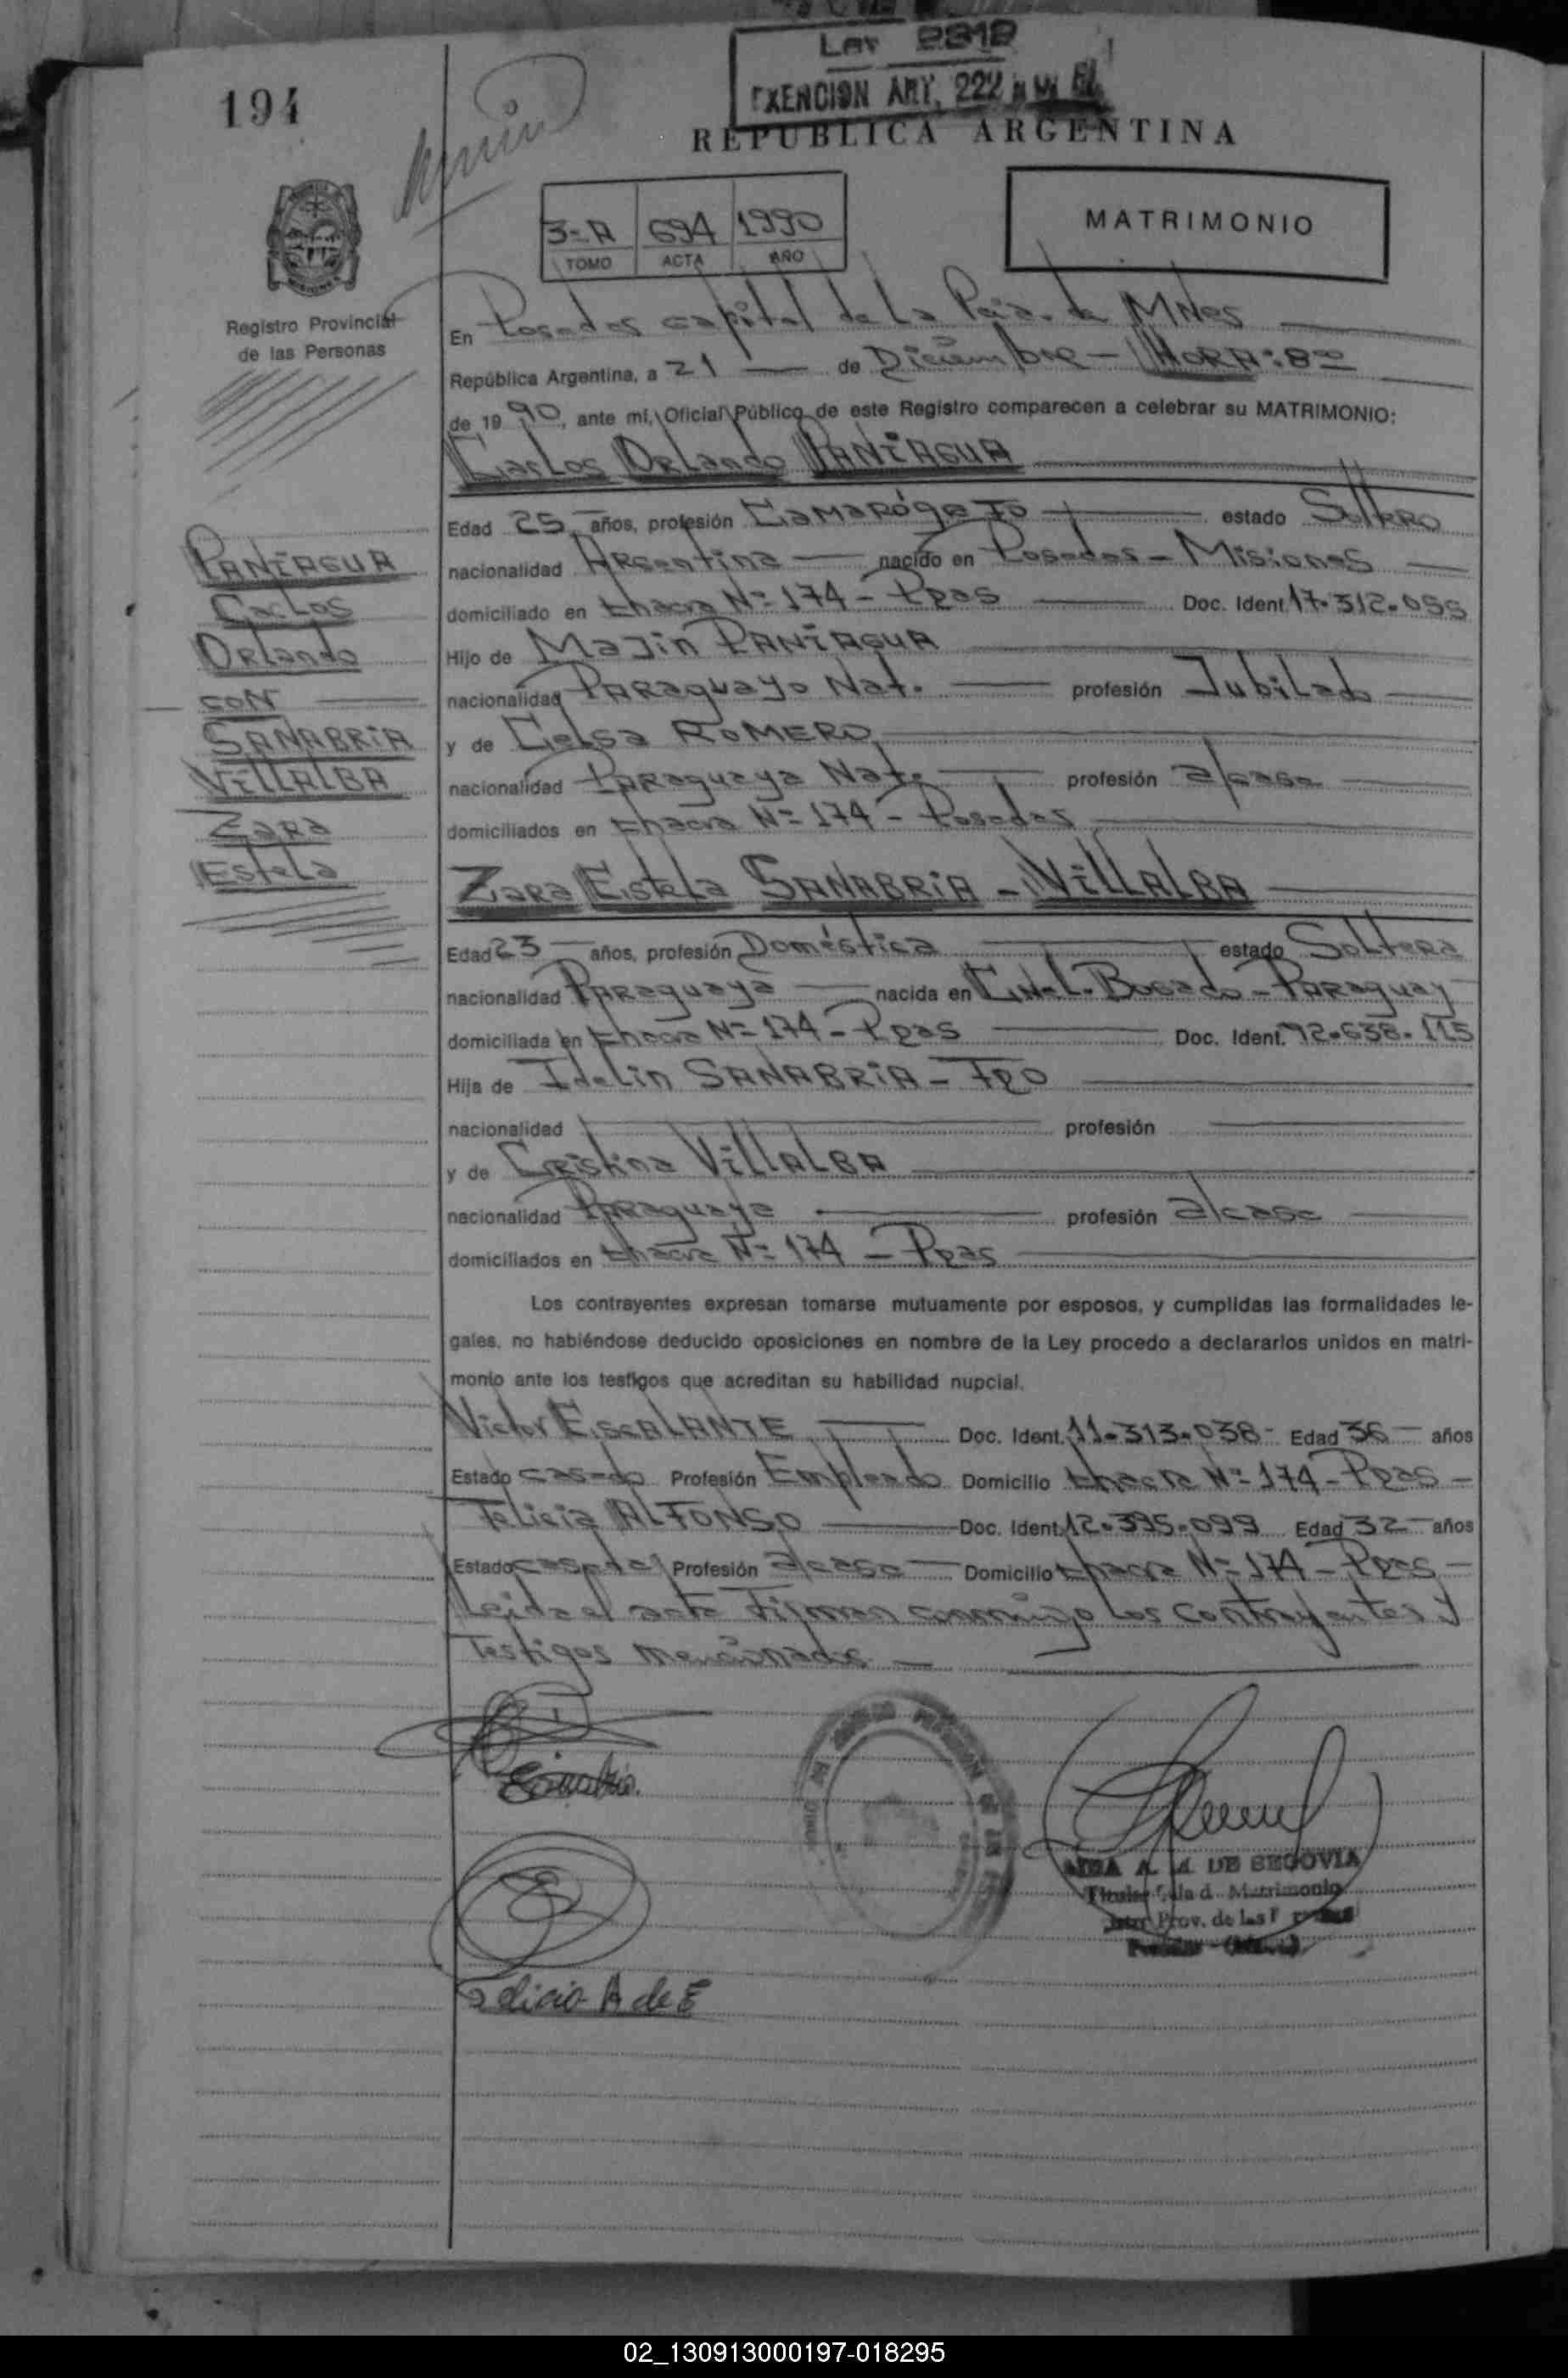 Ley 2312
EXENCION ART. 222
194
REPUBLICA ARGENTINA
3-A 694 1990
TOMO ACTA AÑO
MATRIMONIO
Registro Provincial
de las Personas
En Posadas capital de La Pcia. de Mnes
República Argentina, a 21 de Diciembre - HORA: 800
de 1990, ante mí, Oficial Público de este Registro comparecen a celebrar su MATRIMONIO:
Carlos Orlando PANIAGUA
Edad 25 años, profesión estado Soltero
nacionalidad Argentina nacido en Posadas - Misiones
domiciliado en Chacra Nº 174 - Ppas Doc. Ident. 17.312.055
Hijo de Majin PANIAGUA
nacionalidad Paraguayo Nat. profesión Jubilado
y de Celsa ROMERO
nacionalidad Paraguaya Nat. profesión a/casa
domiciliados en Chacra Nº 174 - Posadas
PANIAGUA
Carlos
Orlando
CON
SANABRIA
VILLALBA
Zara
Estela
Zara Estela SANABRIA - VILLALBA
Edad 23 años, profesión Doméstica estado Soltera
nacionalidad Paraguaya nacida en Cnel. Bogado - Paraguay
domiciliada en Chacra Nº 174 - Ppas Doc. Ident. 92.638.115
Hija de Idelin SANABRIA - 
nacionalidad profesión
y de Cristina VILLALBA
nacionalidad Paraguaya profesión a/casa
domiciliados en Chacra Nº 174 - Ppas
Los contrayentes expresan tomarse mutuamente por esposos, y cumplidas las formalidades le-
gales, no habiéndose deducido oposiciones en nombre de la Ley procedo a declararlos unidos en matri-
monio ante los testigos que acreditan su habilidad nupcial.
Victor ESCALANTE Doc. Ident. 11.313.038 - Edad 36 años
Estado casado Profesión Empleado Domicilio Chacra Nº 174 - Ppas -
Felicia ALFONSO Doc. Ident. 12.395.099 Edad 32 años
Estado casada Profesión a/casa Domicilio Chacra Nº 174 - Ppas -
Leida el acta Firman conmigo Los contrayentes y
Testigos mencionados -
A. M. DE SEGOVIA
Titular Sala d. Matrimonio
Prov. de las P
Felicia A de E
02_130913000197-018295